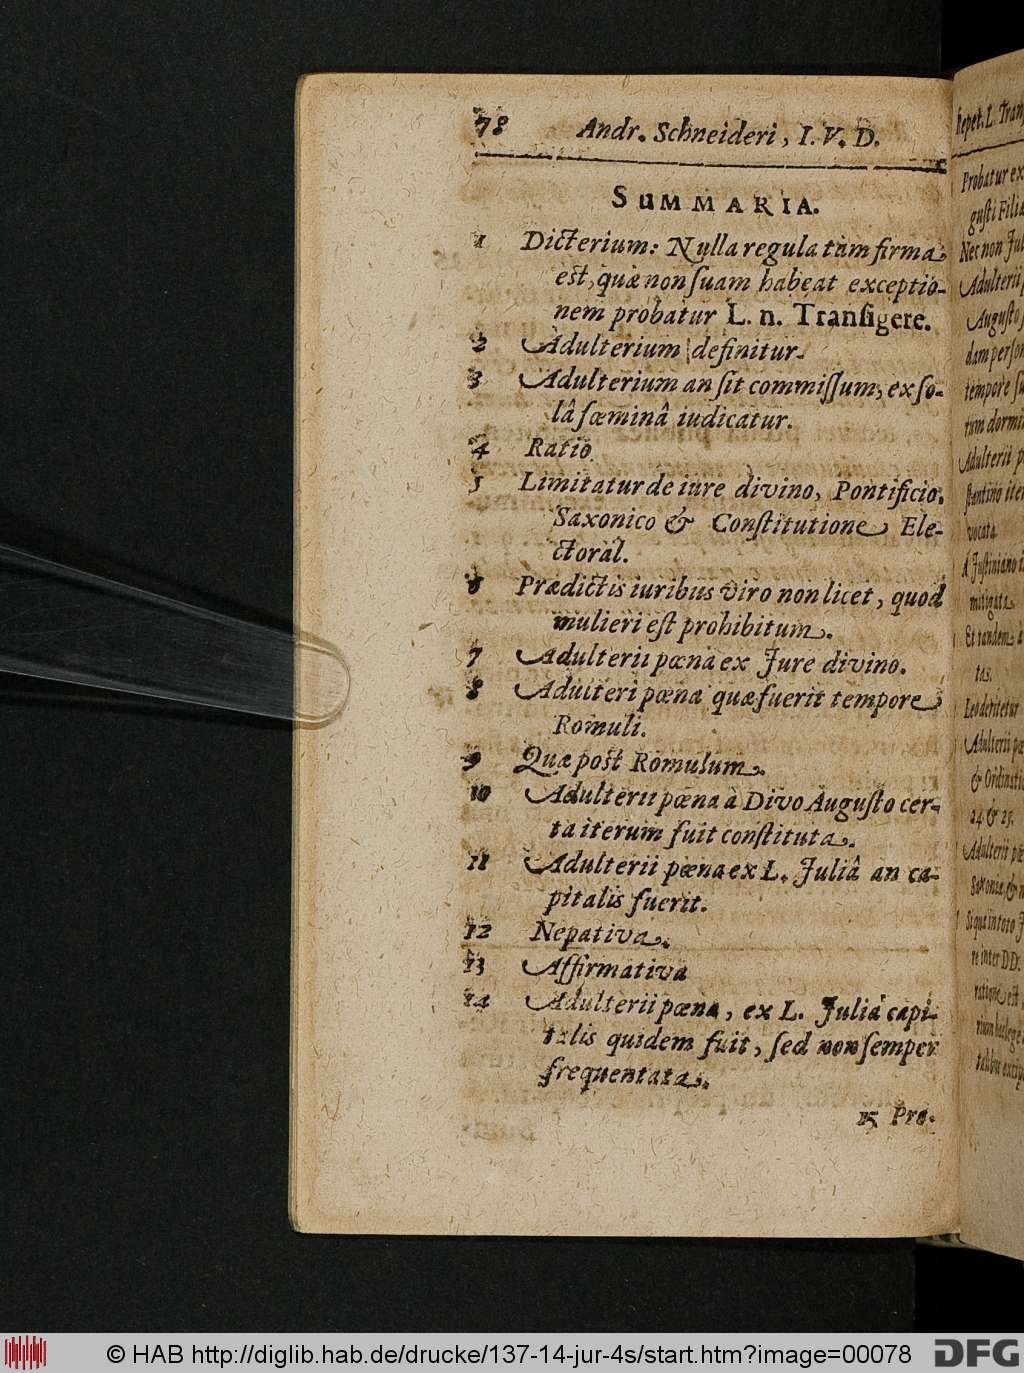 78 Andr. Schneideri, I. V. D.
SUMMARIA.
1 Dicterium: Nulla regula tàm firma
est, quæ non ſuam habeat exceptio-
nem probatur L. n. Tranſigere.
2 Adulterium definitur.
3 Adulterium an ſit commiſſum, ex ſo-
lâ fœminâ iudicatur.
4 Ratio.
5 Limitatur de iure divino, Pontificio,
Saxonico & Conſtitutione Ele-
ctoral.
6 Prædictis iuribus viro non licet, quod
mulieri eſt prohibitum.
7 Adulterii pœna ex Jure divino.
8 Adulteri pœna quæ fuerit tempore
Romuli.
9 Quæ poſt Romulum.
10 Adulterii pœna à Divo Auguſto cer-
ta iterum fuit conſtituta.
11 Adulterii pœna ex L. Juliâ an ca-
pitalis fuerit.
12 Nepativa.
13 Affirmativa
14 Adulterii pœna, ex L. Juliâ capi-
talis quidem fuit, ſed non ſemper
frequentata.
15 Pro-
hepet. L. Tran
Probatur ex
guſti Filia
Nec non Jul
Adulterii
Auguſto
dam perſon
tempore ſu
tùm dormi
Adulterii p
ſtantino iter
vocata
A Juſtiniano
mitigata
Et tandem à
tas.
Adulterii pœ
& Ordinatio
24 & 25.
Adulterii pœ
Saxonia, &
Si qua in toto J
re inter DD.
ratione eſt
© HAB http://diglib.hab.de/drucke/137-14-jur-4s/start.htm?image=00078
DFG